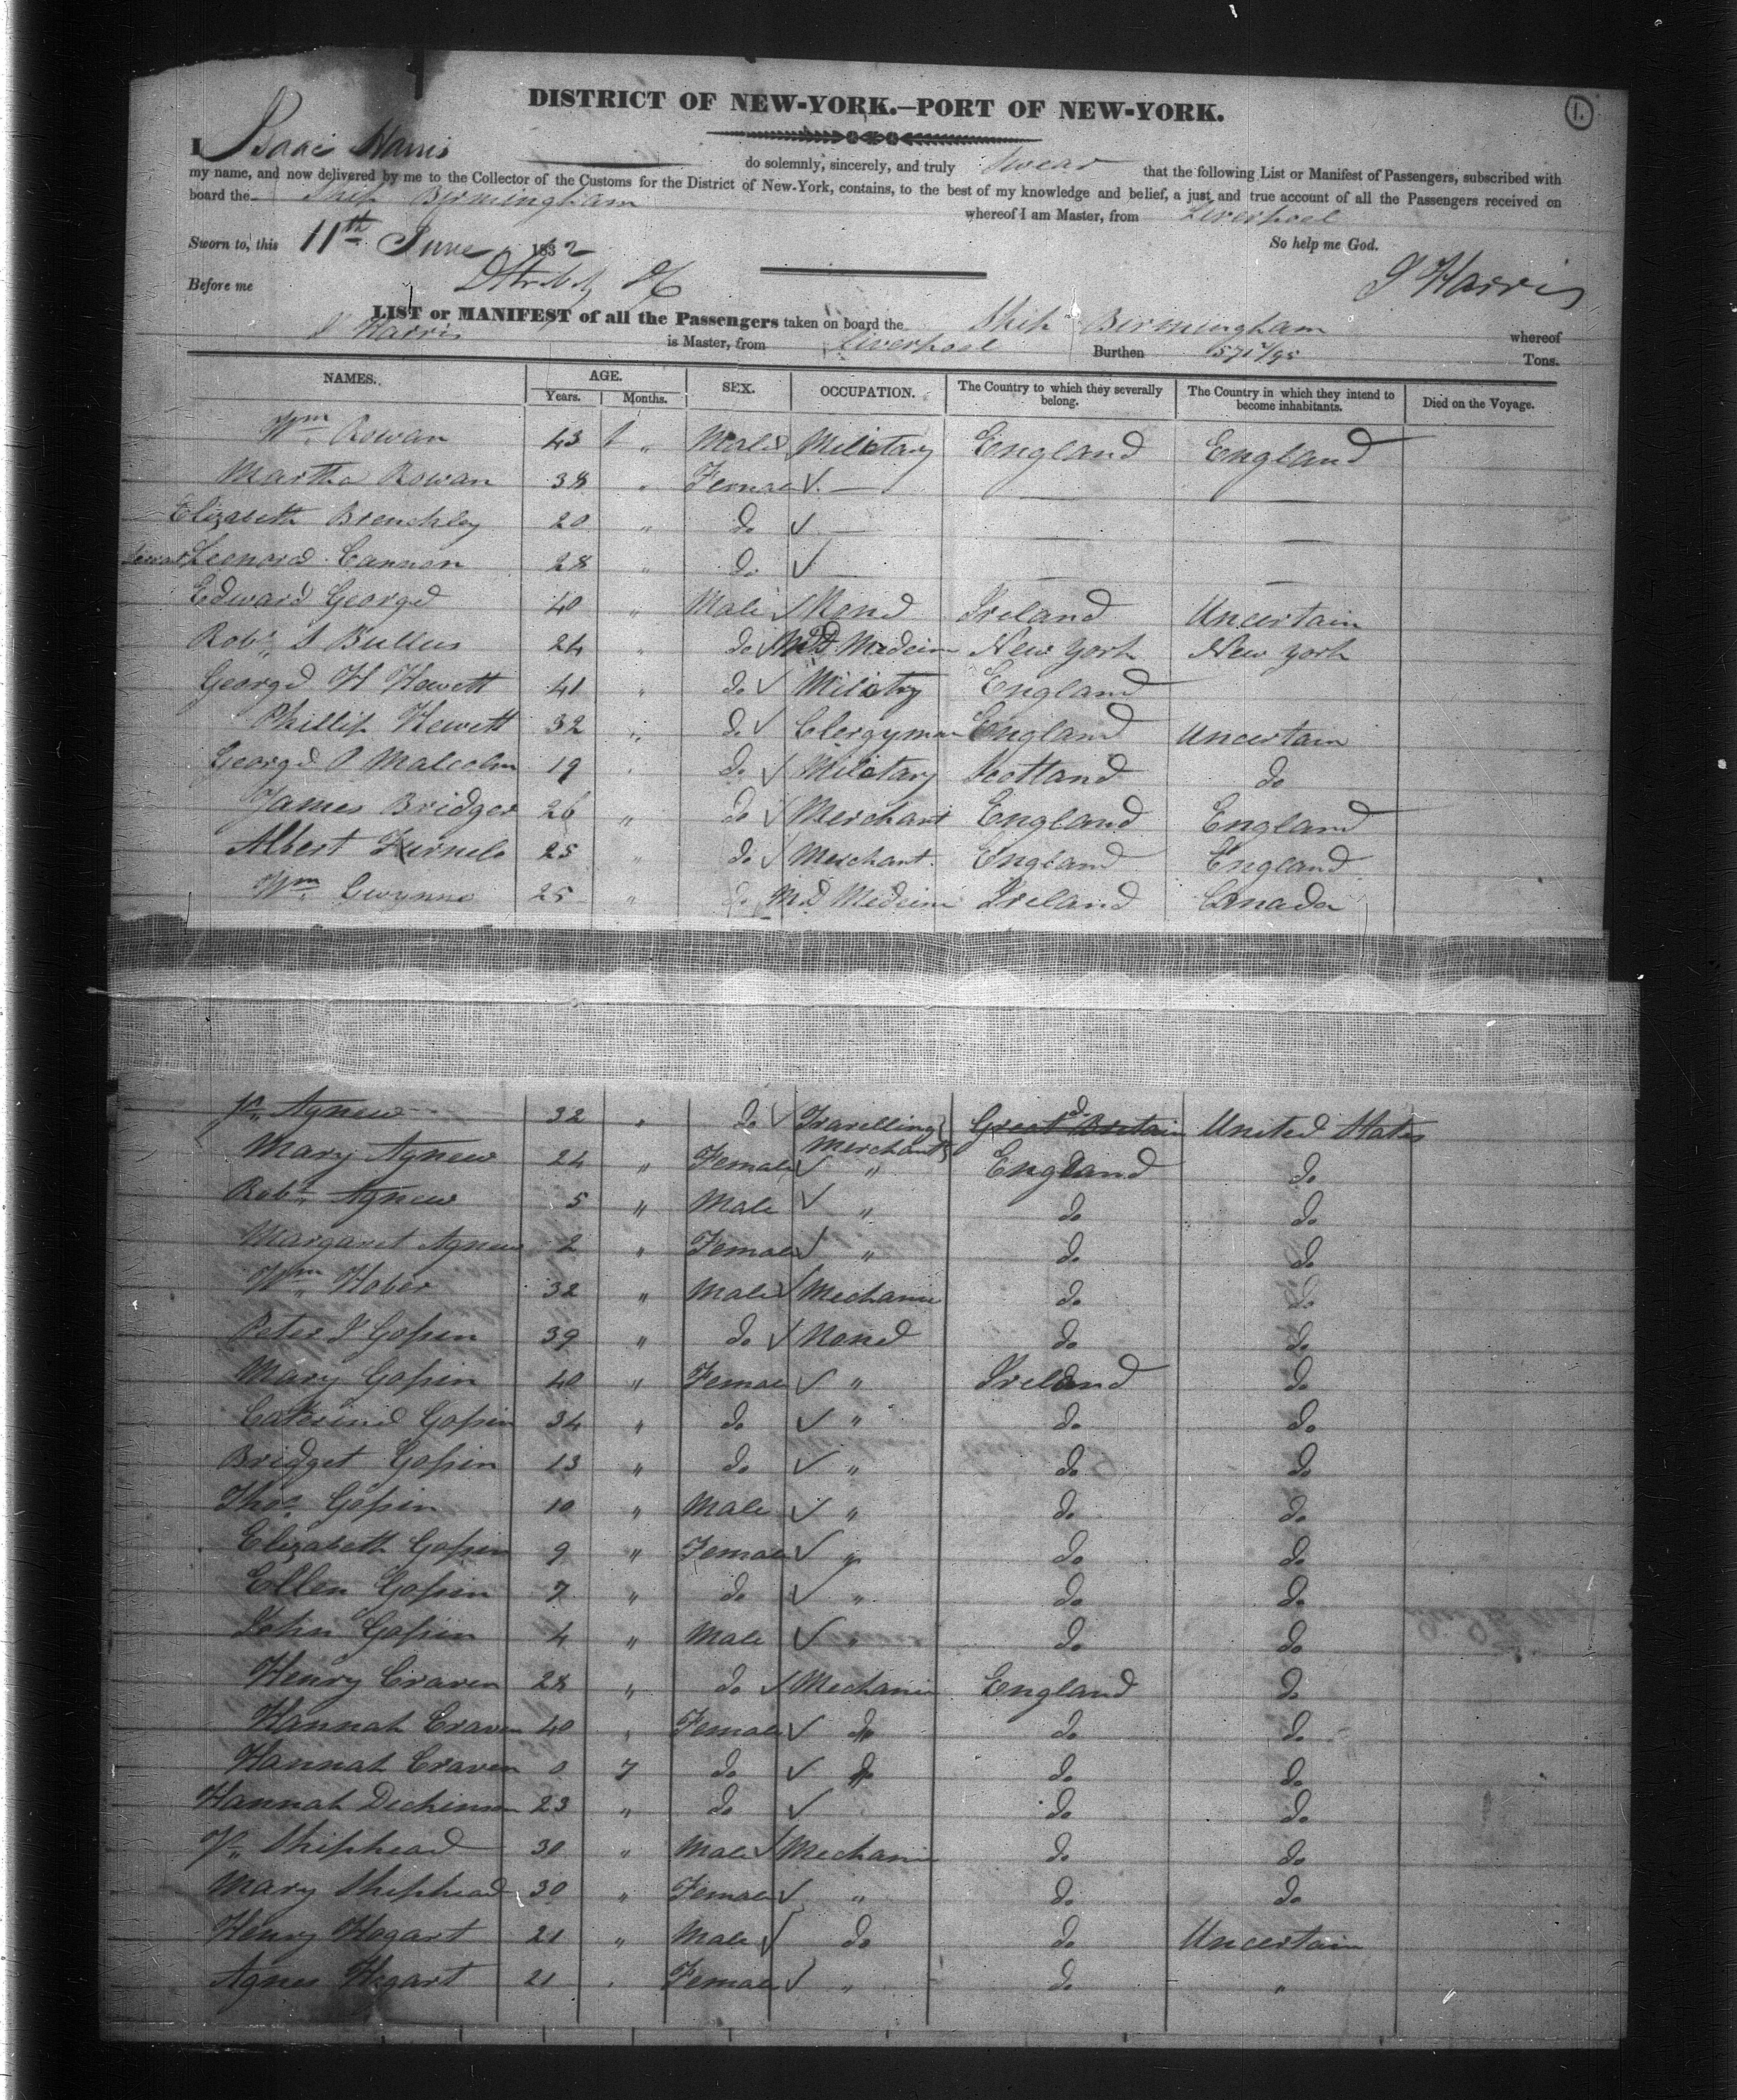 1.
DISTRICT OF NEW-YORK.—PORT OF NEW-YORK.
I Isaac Harris do solemnly, sincerely, and truly swear that the following List or Manifest of Passengers, subscribed with
my name, and now delivered by me to the Collector of the Customs for the District of New-York, contains, to the best of my knowledge and belief, a just and true account of all the Passengers received on
board the Ship Birmingham whereof I am Master, from Liverpool
Sworn to, this 11th June 1832 So help me God.
Before me J Harris
LIST or MANIFEST of all the Passengers taken on board the Ship Birmingham whereof
J Harris is Master, from Liverpool Burthen 571 /95 Tons.
NAMES. AGE. Years. Months. SEX. OCCUPATION. The Country to which they severally belong. The Country in which they intend to become inhabitants. Died on the Voyage.
Wm Rowan 43 " Male Military England England
Martha Rowan 38 " Female —
Elizabeth Brenchley 20 " do —
Leonora Cannon 28 " do
Edward George 40 " Male None Ireland Uncertain
Robt S Bullus 24 " do MD Medicin New York New York
George H Hewett 41 " do Military England
Phillip Hewett 32 " do Clergyman England Uncertain
George P Malcolm 19 " do Military Scotland do
James Bridger 26 " do Merchant England England
Albert 25 " do Merchant England England
Wm Gwynne 25 " do MD Medicine Ireland Canada
Jno Agnew 32 " do Travelling Great Britain United States
Merchant
Mary Agnew 24 " Female " England do
Robt Agnew 5 " Male " do do
Margaret Agnew 2 " Female " do do
Wm Hober 32 " Male Mechanic do do
Peter J Gossin 39 " do None do do
Mary Gossin 40 " Female " Ireland do
Caterine Gossin 34 " do " do do
Bridget Gossin 13 " do " do do
Thos Gossin 10 " Male " do do
Elizabeth Gossin 9 " Female " do do
Ellen Gossin 7 " do " do do
John Gossin 4 " Male " do do
Henry Craven 28 " do Mechanic England do
Hannah Craven 40 " Female do do
Hannah Craven 0 7 do do do
Hannah Dickinson 23 " do do do
Jno Shiphead 30 " Male Mechanic do do
Mary Shiphead 30 " Female " do do
Henry Hogart 21 " Male do do Uncertain
Agnes Hogart 21 " Female " do "